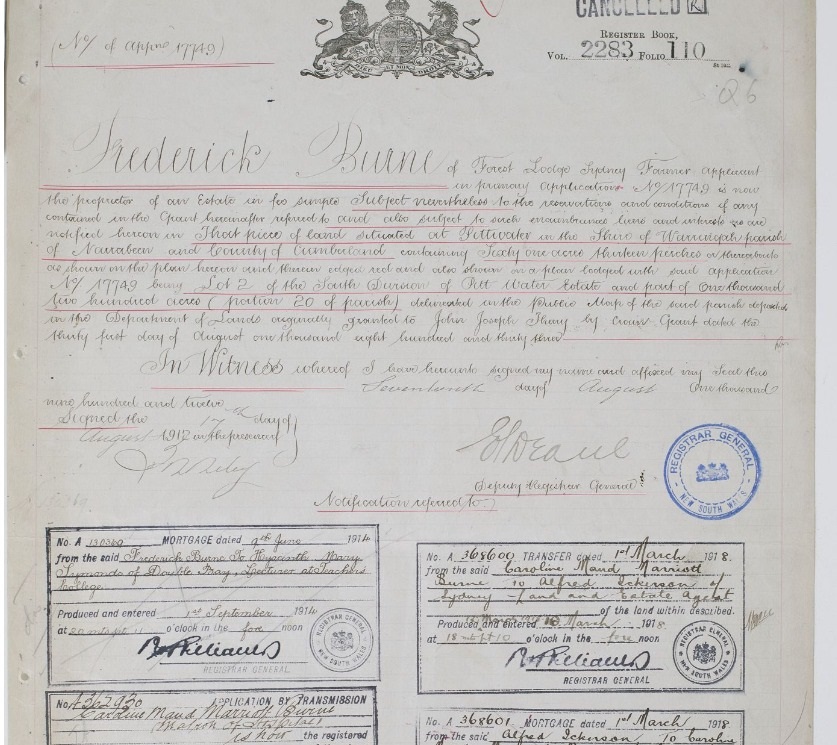 CANCELLED
(No. of Appn. 17749)
REGISTER BOOK,
VOL. 2283 FOLIO 110
Frederick Burne of Forest Lodge Sydney Farmer Applicant
in primary Application No. 17749 is now
the proprietor of an Estate in fee simple Subject nevertheless to the reservations and conditions if any
contained in the Grant hereinafter referred to and also subject to such encumbrances liens and interests as are
notified hereon in That piece of land situated at Pittwater in the Shire of Warringah parish
of Narrabeen and County of Cumberland containing Sixty one acres thirteen perches or thereabouts
as shown on the plan hereon and therein edged red and also shown on a plan lodged with said application
No. 17749 being Lot 2 of the South Division of Pitt Water Estate and part of One thousand
five hundred acres (portion 20 of parish) delineated in the Public Map of the said parish deposited
in the Department of Lands originally granted to John Joseph by Crown Grant dated the
thirty first day of August one thousand eight hundred and thirty three
In Witness whereof I have hereunto signed my name and affixed my Seal this
Seventeenth day of August One thousand
nine hundred and twelve
Signed the 17th day of
August 1912 in the presence of
Deputy Registrar General
REGISTRAR GENERAL
NEW SOUTH WALES
Notification referred to
No. A MORTGAGE dated 9th June 1914
from the said Frederick Burne To Hyacinth Mary
Symonds of Double Bay, Lecturer at Teachers
College
Produced and entered 1st September 1914
at 20 mts pt 11 o'clock in the fore noon
REGISTRAR GENERAL
REGISTRAR GENERAL
NEW SOUTH WALES
No. A 368600 TRANSFER dated 1st March 1918.
from the said Caroline Maud Marriott
Burne to Alfred of
Sydney Land and Estate Agent
of the land within described.
Produced and entered March 1918
at 18 mts pt 10 o'clock in the fore noon
REGISTRAR GENERAL
REGISTRAR GENERAL
NEW SOUTH WALES
No. A362930 APPLICATION BY TRANSMISSION
Caroline Maud Marriott Burne
is now the registered
No. A 368601 MORTGAGE dated 1st March 1918
from the said Alfred To Caroline